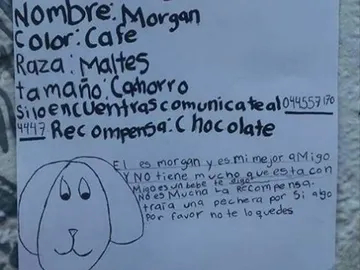 Nombre: Morgan
Color: Cafe
Raza: Maltes
tamaño: Cachorro
Si lo encuentras comunicate al 044557170
4447 Recompensa: Chocolate
El es morgan y es mi mejor aMigo
Y NO tiene mucho que esta con
Migo es un bebe te digo
NO es Mucha La Recompensa.
traia una pechera por si algo
Por favor no te lo quedes